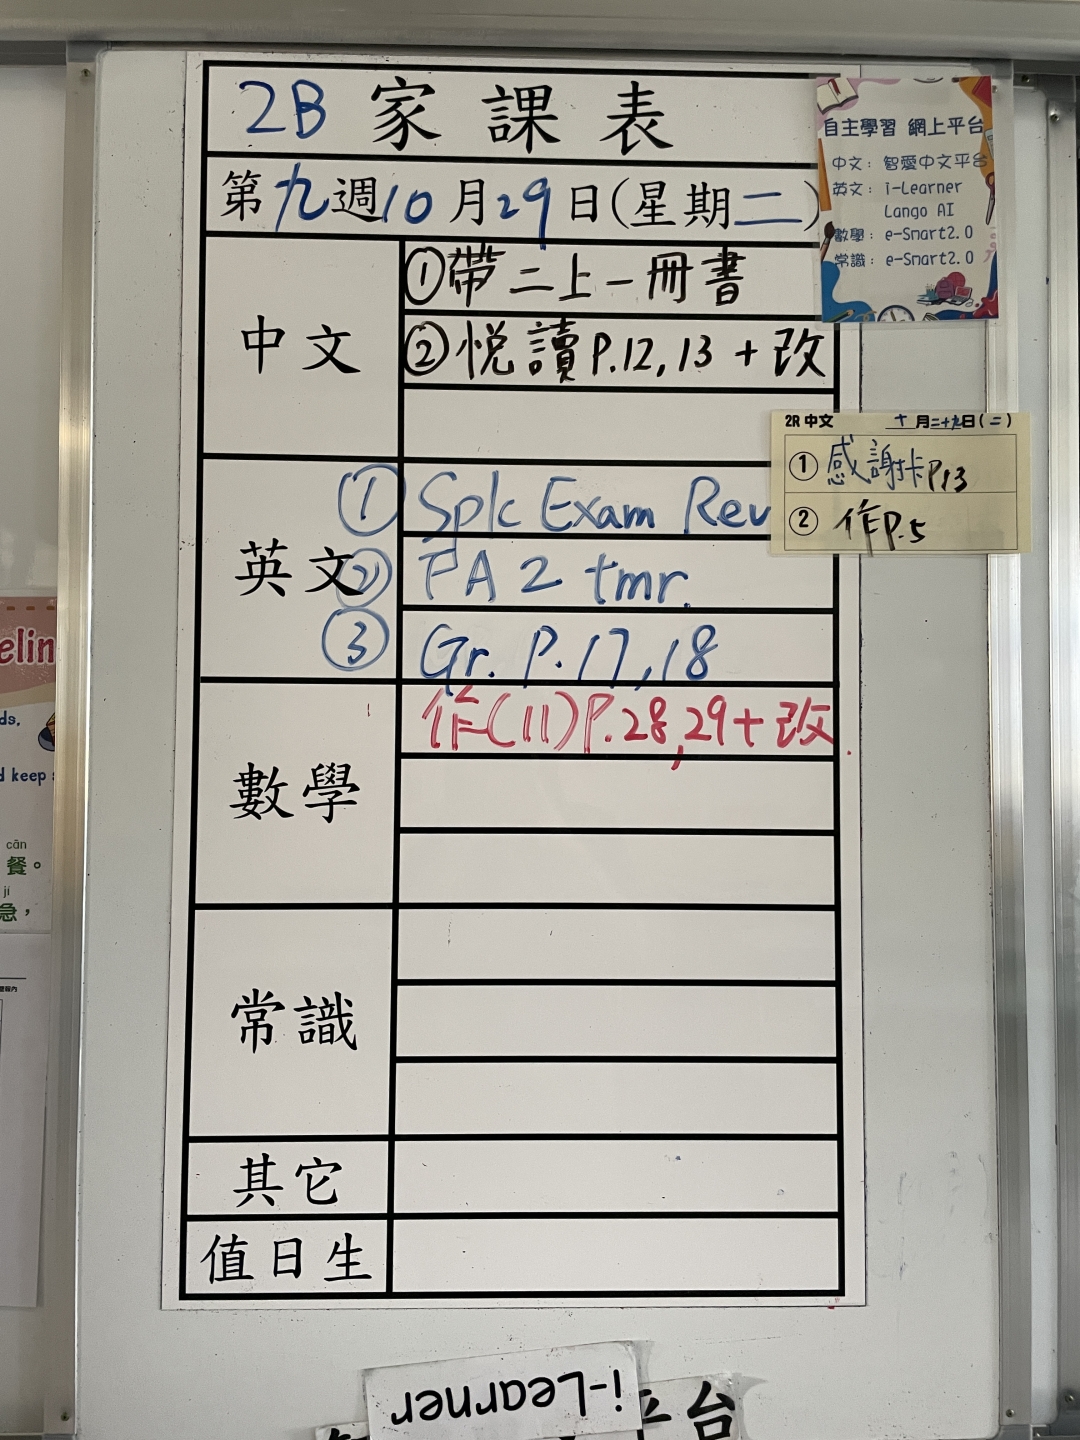 2B 家課表
第九週10月29日(星期二)
中文
①帶二上一冊書
②悦讀P.12,13 + 改
英文
① Spk Exam Rev
② PA 2 tmr.
③ Gr. P.17,18
數學
作(11)P.28,29+改
常識
其它
值日生
自主學習 網上平台
中文：智愛中文平台
英文：i-Learner
Lango AI
數學：e-Smart2.0
常識：e-Smart2.0
2R 中文 十月二十九日(二)
① 感謝卡P.13
② 作P.5
elin
ds,
d keep
cān
餐。
jí
急，
i-Learner
平台